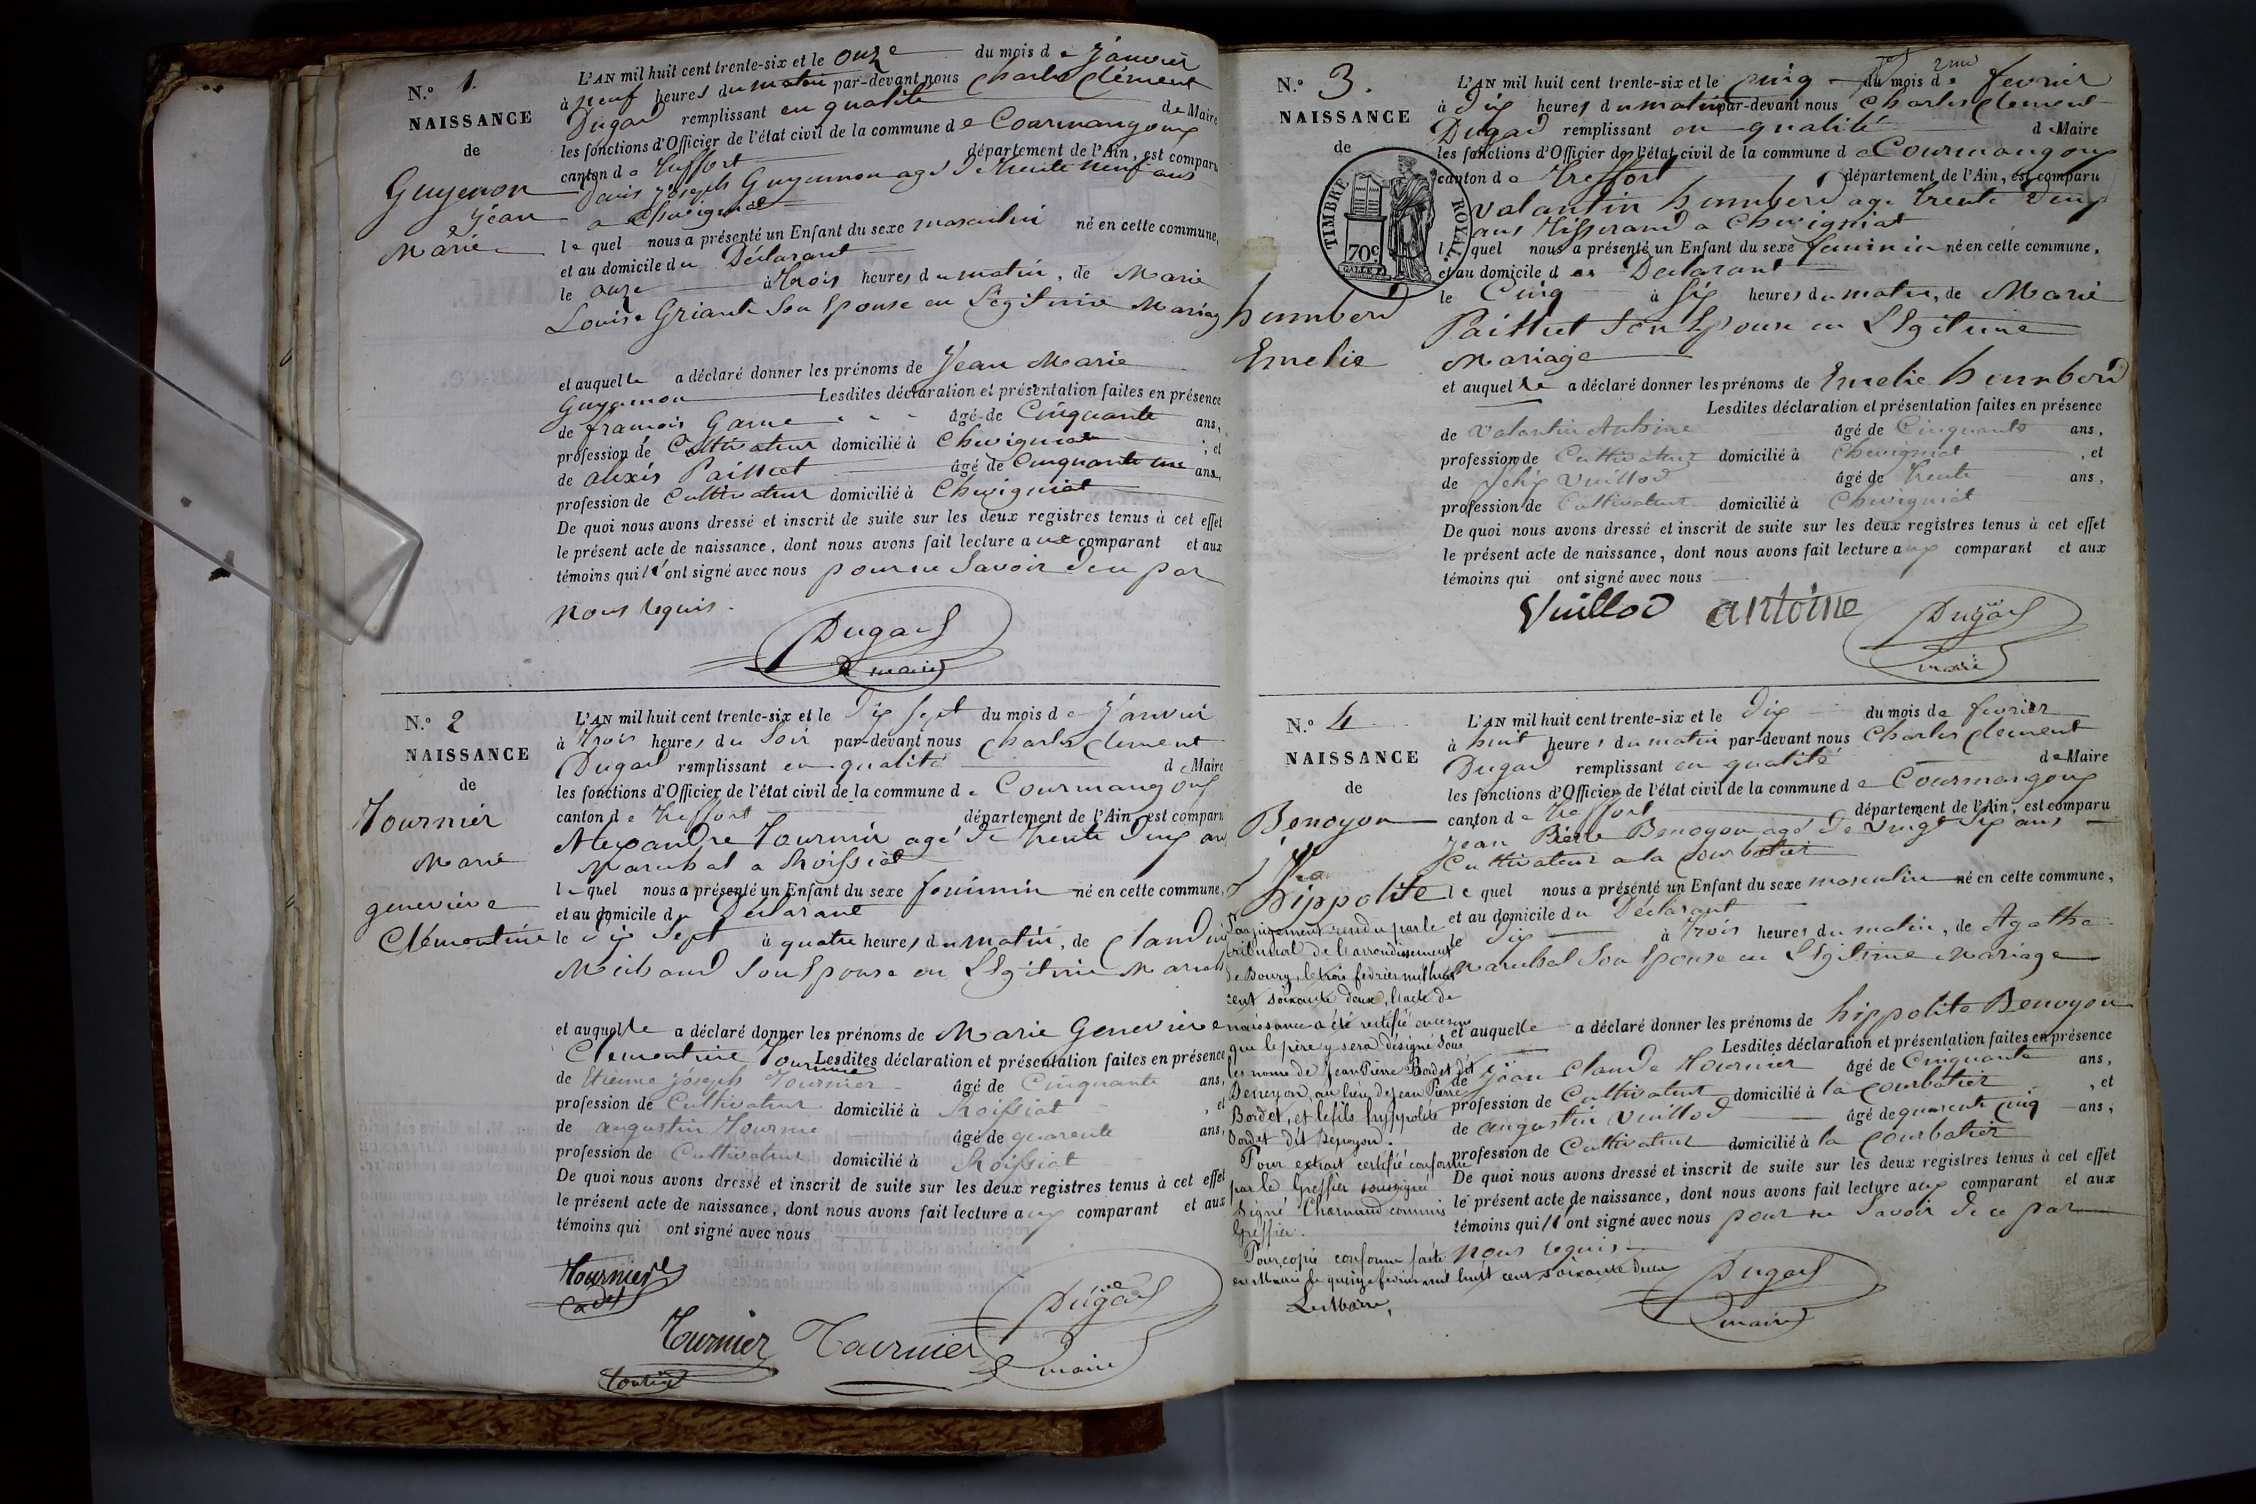 N.º 1.
NAISSANCE
de
Guyenon
Jean
Marie
L'AN mil huit cent trente-six et le onze du mois de janvier
à neuf heures du matin par-devant nous Charles Clément
Dugad remplissant en qualité de Maire
les fonctions d'Officier de l'état civil de la commune de Courmangoux
canton de Treffort département de l'Ain, est comparu
Joseph Guyennon agé de trente neuf ans
a Chevigniat
le quel nous a présenté un Enfant du sexe masculin né en cette commune,
et au domicile du Déclarant
le onze à trois heures du matin, de Marie
Louise Griant Son Epouse en Légitime Mariag
et auquel le a déclaré donner les prénoms de Jean Marie
Guyennon Lesdites déclaration et présentation faites en présence
de françois Game âgé de Cinquante ans,
profession de Cultivateur domicilié à Chevigniat ; et
de alexis Paillet âgé de Cinquante une ans,
profession de Cultivateur domicilié à Chevigniat
De quoi nous avons dressé et inscrit de suite sur les deux registres tenus à cet effet
le présent acte de naissance, dont nous avons fait lecture aux comparant et aux
témoins qui n'ont signé avec nous pour ne Savoir deu par
nous requis.
Dugad
maire
N.º 2
NAISSANCE
de
Tournier
Marie
geneviève
Clémentine
L'AN mil huit cent trente-six et le dix sept du mois de janvier
à trois heures du Soir par-devant nous Charles Clement
Dugad remplissant en qualité de Maire
les fonctions d'Officier de l'état civil de la commune de Courmangoux
canton de Treffort département de l'Ain, est comparu
Alexandre Tournier agé de trente deux ans
Marechal a Roissiat
le quel nous a présenté un Enfant du sexe feminin né en cette commune,
et au domicile du Declarant
le dix Sept à quatre heures du matin, de Claudine
Michaud Son Epouse en Legitime Mariag
et auquel le a déclaré donner les prénoms de Marie Genevieve
Clementine Tournier Lesdites déclaration et présentation faites en présence
de Etienne joseph Tournier âgé de Cinquante ans,
profession de Cultivateur domicilié à Roissiat , et
de augustin Tournier âgé de quarente ans,
profession de Cultivateur domicilié à Roissiat
De quoi nous avons dressé et inscrit de suite sur les deux registres tenus à cet effet
le présent acte de naissance, dont nous avons fait lecture aux comparant et aux
témoins qui ont signé avec nous
Tournier
Dugad
Tournier Tournier
maire
N.º 3.
NAISSANCE
de
TIMBRE ROYAL.
70c
humberd
Emelie
2me
L'AN mil huit cent trente-six et le cinq du mois de fevrier
à dix heures du matin par-devant nous Charles Clement
Dugad remplissant en qualité de Maire
les fonctions d'Officier de l'état civil de la commune de Courmangoux
canton de Treffort département de l'Ain, est comparu
Valantin humberd agé trente deux
ans Tisserand a Chevigniat
le quel nous a présenté un Enfant du sexe feminin né en cette commune,
et au domicile du Declarant
le Cinq à six heures du matin, de Marie
Paillet Son Epouse en LEgitime
Mariage
et auquel le a déclaré donner les prénoms de Emelie humberd
Lesdites déclaration et présentation faites en présence
de Valantin Antoine âgé de Cinquante ans,
profession de Cultivateur domicilié à Chevigniat , et
de felix Vuillod âgé de trente ans,
profession de Cultivateur domicilié à Chevigniat
De quoi nous avons dressé et inscrit de suite sur les deux registres tenus à cet effet
le présent acte de naissance, dont nous avons fait lecture aux comparant et aux
témoins qui ont signé avec nous
Vuillod antoine Dugad
maire
N.º 4
NAISSANCE
de
Benoyon
hippolite
Par jugement rendu par le
tribunal de l'arrondissement
de Bourg, le trois fevrier mil huit
cent soixante deux, l'acte de
naissance a été rectifié en ce sens
que le père y sera désigné sous
les noms de Jean Pierre Bordet dit
Benoyon, au lieu de Jean Pierre
Bordet, et le fils hyppolite
Bordet dit Benoyon.
Pour extrait certifié conforme
par le Greffier soussigné
Signé Charnaud commis
Greffier.
Pour copie conforme faite
en Mairie le quinze fevrier mil huit cent soixante deux
Le Maire,
L'AN mil huit cent trente-six et le dix du mois de fevrier
à huit heures du matin par-devant nous Charles Clement
Dugad remplissant en qualité de Maire
les fonctions d'Officier de l'état civil de la commune de Courmangoux
canton de Treffort département de l'Ain, est comparu
Jean Pierre Benoyon agé de vingt dix ans
Cultivateur a la Courbatier
le quel nous a présenté un Enfant du sexe masculin né en cette commune,
et au domicile du Déclarant
le dix à trois heures du matin, de Agathe
Marechal Son Epouse en LEgitime Mariage
et auquel le a déclaré donner les prénoms de hippolite Benoyon
Lesdites déclaration et présentation faites en présence
de jean Claude Tournier âgé de Cinquante ans,
profession de Cultivateur domicilié à la Courbatier , et
de augustin Vuillod âgé de quarente cinq ans,
profession de Cultivateur domicilié à la Courbatier
De quoi nous avons dressé et inscrit de suite sur les deux registres tenus à cet effet
le présent acte de naissance, dont nous avons fait lecture aux comparant et aux
témoins qui n'ont signé avec nous pour ne Savoir de ce par
nous requis
Dugad
maire